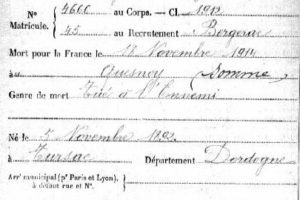 N° 4600 au Corps. — Cl. 1912
Matricule. 45 au Recrutement Bergerac
Mort pour la France le 28 Novembre 1914
à Quesnoy (Somme)
Genre de mort Tué à l'Ennemi
Né le 7 Novembre 1892
à Tursac Département Dordogne
Arr' municipal (p' Paris et Lyon),
à défaut rue et N°.